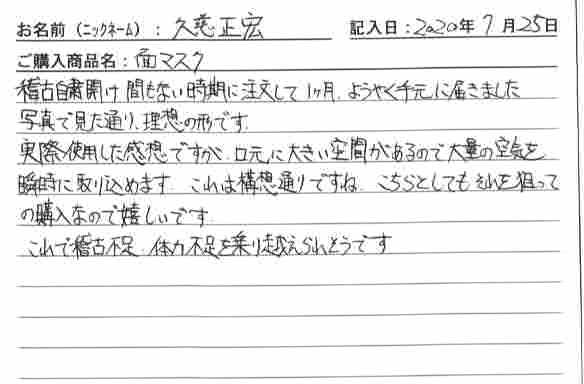 お名前（ニックネーム）：久慈正宏 記入日：2020年7月25日
ご購入商品名：面マスク
稽古自粛開け間もない時期に注文して1ヶ月、ようやく手元に届きました
写真で見た通り、理想の形です。
実際使用した感想ですが、口元に大きい空間があるので大量の空気を
瞬時に取り込めます。これは構想通りですね。こちらとしてもそれを狙って
の購入なので嬉しいです。
これで稽古不足、体力不足を乗り越えられそうです